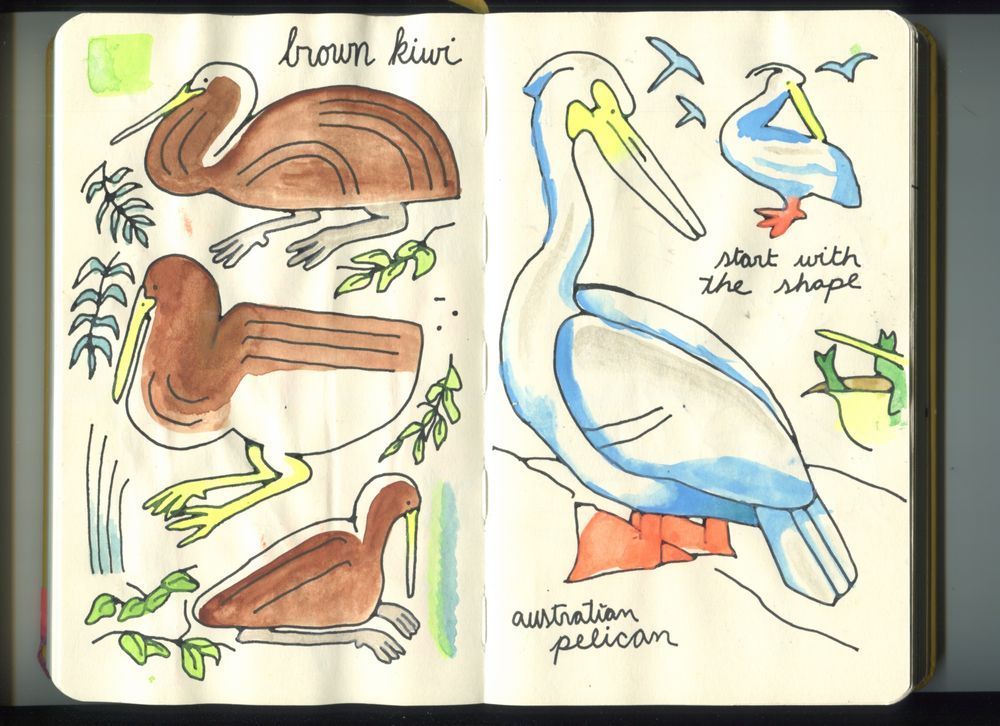 brown kiwi
start with
the shape
australian
pelican